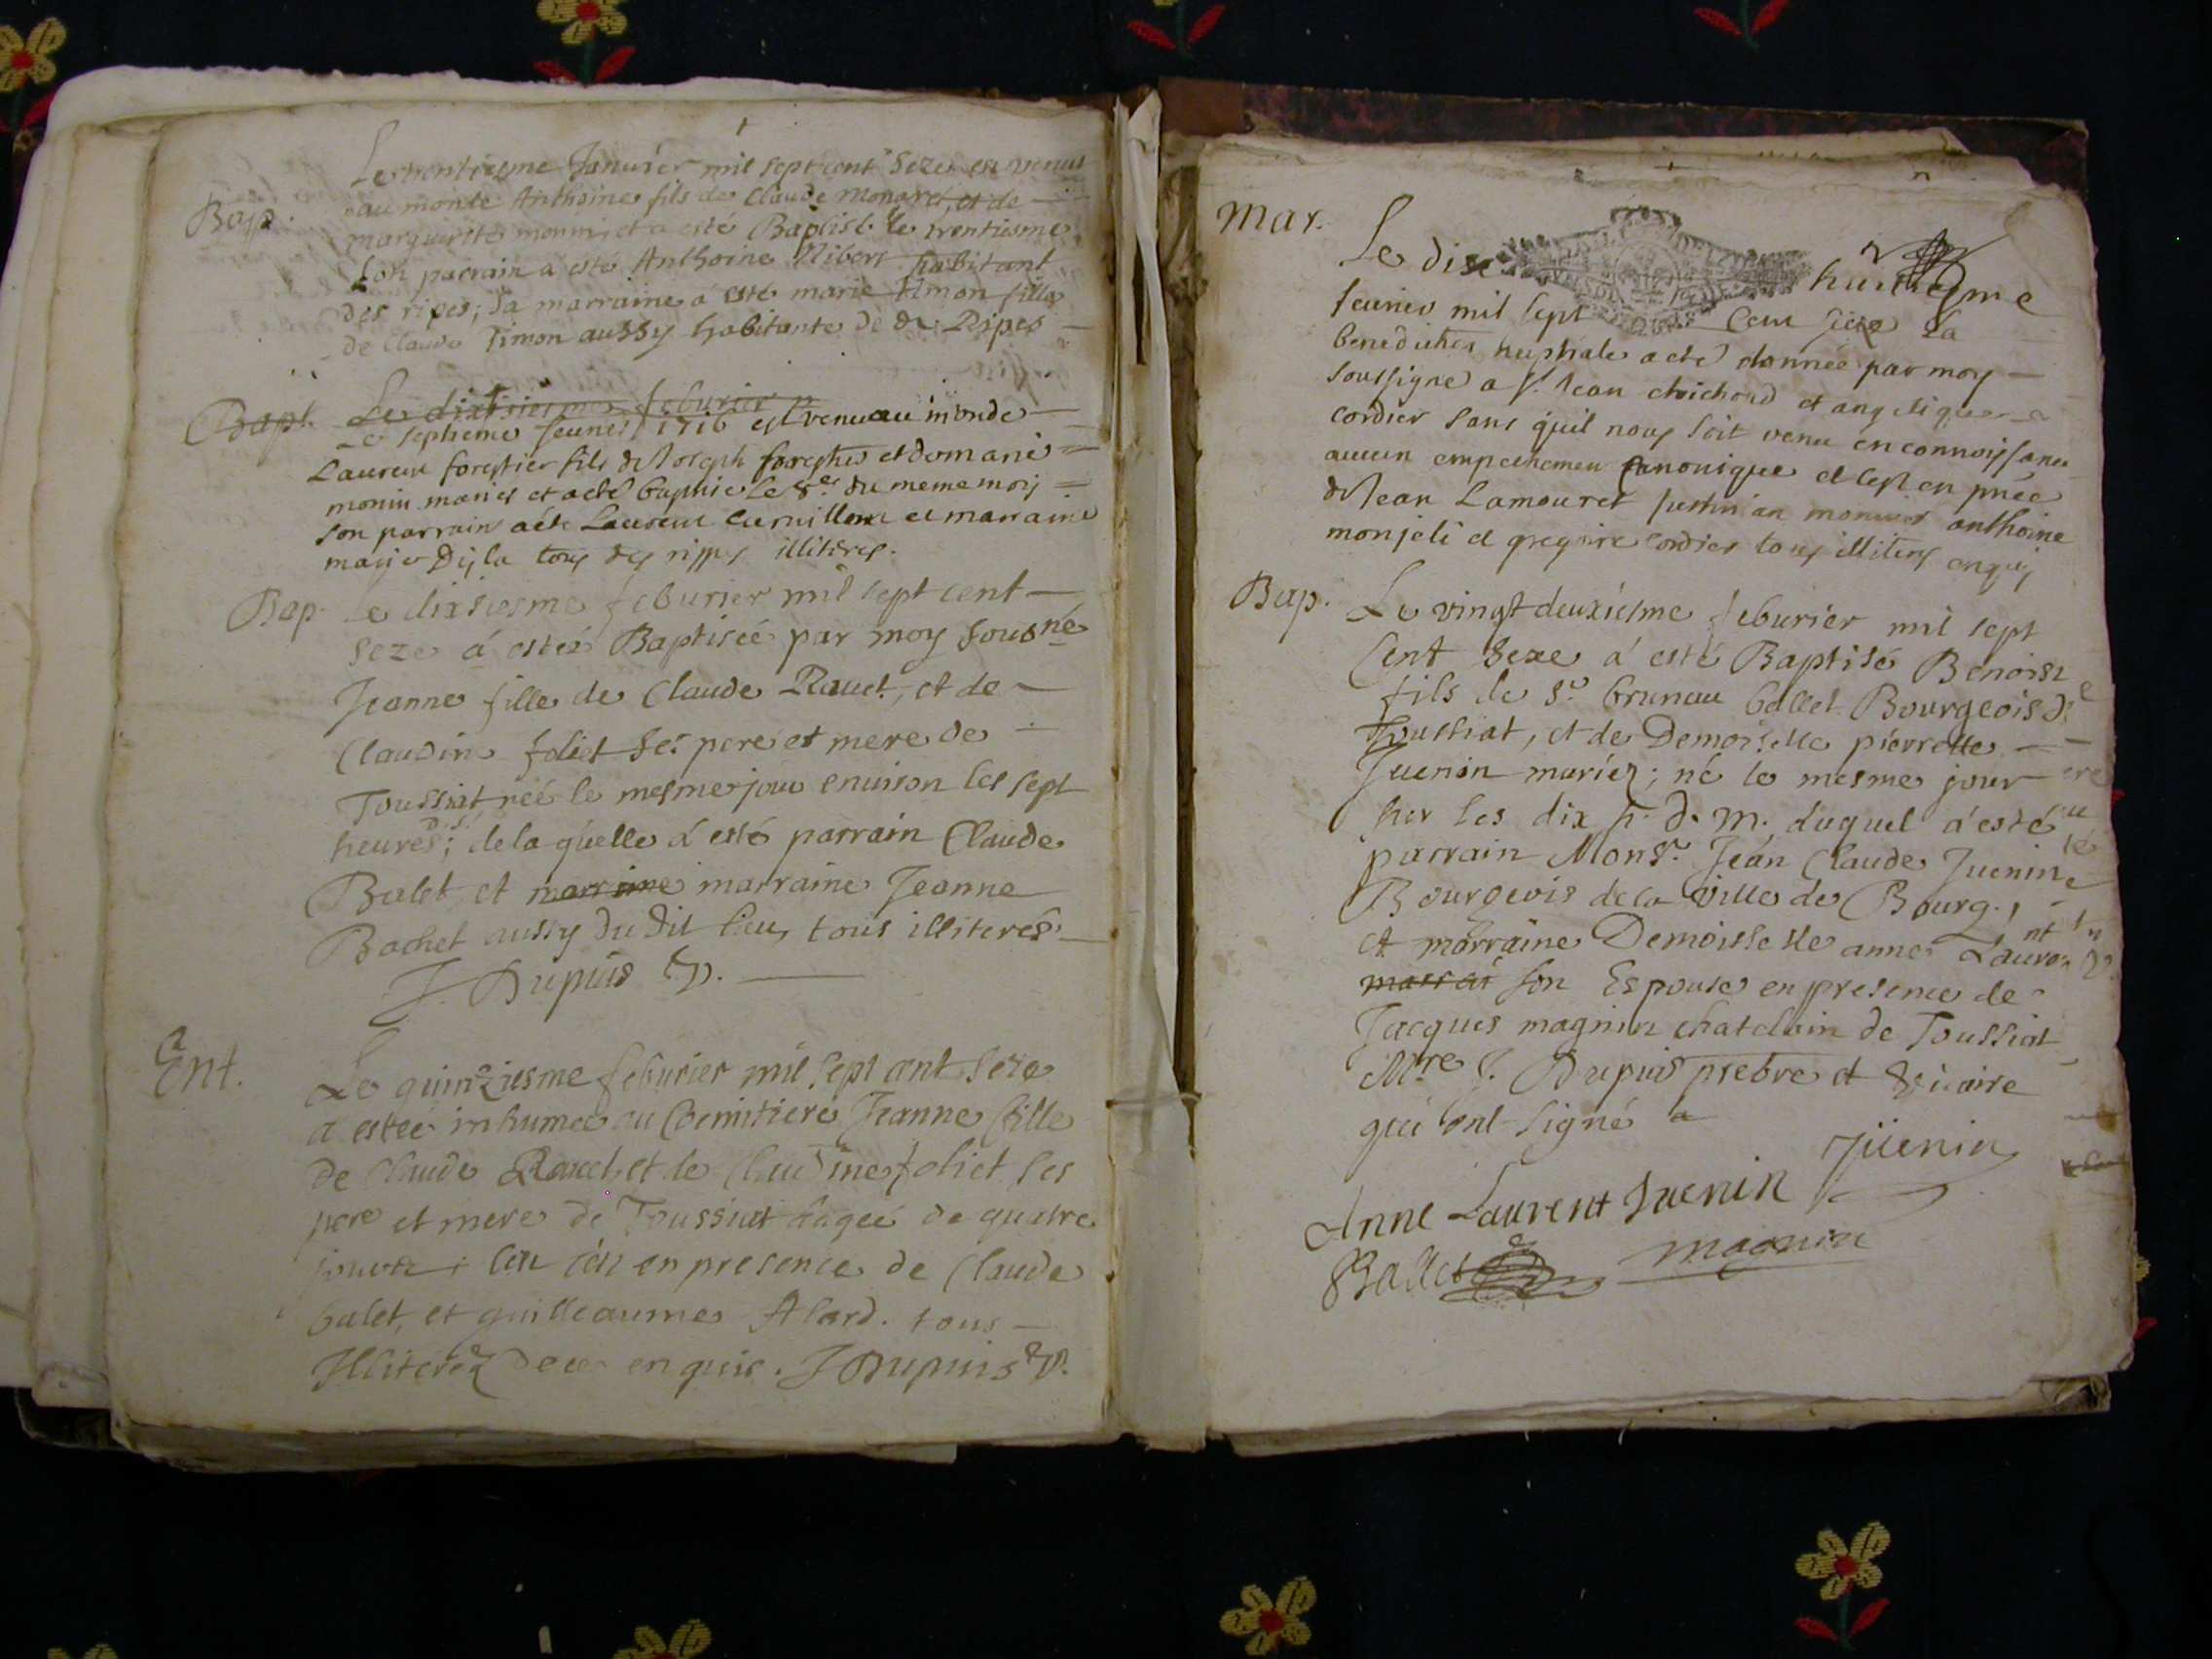 Bap.
Le trentiesme Januier mil sept cent Seze est venu
au monde Anthoine fils de Claude Monaret, et de
marguerite monin, et a esté Baptisé le trentiesme,
son parrain a esté Anthoine Nibert habitant
des ripes; sa marraine a esté marie timon fille
de Claude timon aussy habitante de Ripes
Bapt. Le dixsiesme feburier
Le septieme feurier 1716 est venu au monde
Laurent forestier fils de Joseph forestier et de marie
monin mariés et a eté baptisé le 8e du meme mois
son parrain a été Laurent Curnillon et marraine
tous des rippes illiteres.
Bap. Le dixsiesme feburier mil sept cent
Seze á estée Baptisée par moy sousné
Jeanne fille de Claude Rauet, et de
Claudine foliet ses pere et mere de
Toussiat née le mesme jour enuiron les sept
heures; de la quelle á esté parrain Claude
Balet, et marraine marraine Jeanne
Bachet aussy du dit lieu, tous illiterés
J. Dupuis V.
Ent.
Le quinziesme feburier mil sept cent seze
a estée inhumée au Coemitiere Jeanne fille
de Claude Rauet et de Claudine foliet ses
pere et mere de Toussiat aagée de quatre
jours; en presence de Claude
balet, et guilleaume Alard. tous
Illiterez de ce enquis. J Dupuis V.
Mar.
Le dixhuitiesme
feurier mil sept cent seize la
benediction nuptiale a eté donnée par moy
soussigné a Sr. Jean chichoud et angelique
cordier sans quil nous soit venu en connoissance
aucun empechement canonique et cest en pnce
de Jean Lamouret justinian monnier anthoine
monjeli et gregoire cordier tous illiteres enquis
Bap. Le vingt deuxiesme feburier mil sept
Cent Seze á esté Baptisé Benoist
fils de Sr. bruneau ballet Bourgeois de
Toussiat, et de Demoiselle pierrette
Juenin mariez; né le mesme jour
sur les dix h. d. m. duquel á esté
parrain Monsr. Jean Claude Juenin
Bourgeois de la Ville de Bourg,
et marraine Demoiselle anne Laurent
son Espouse en presence de
Jacques magnin chatelain de Toussiat
Mre J. Dupuis prebre et Vicaire
qui ont signé
Jüenin
Anne Laurent Juenin
Ballet magnin